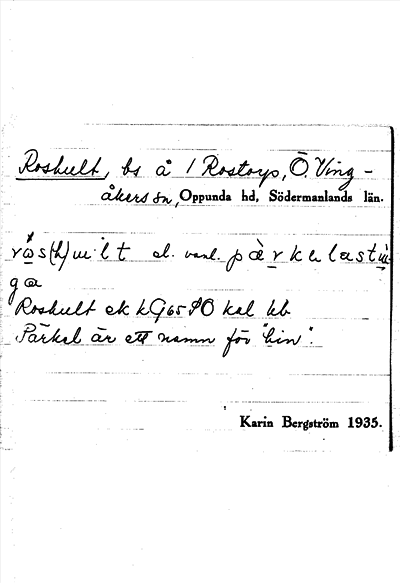 Roshult, bs å 1 Rostorp, Ö. Ving-
åkers sn, Oppunda hd, Södermanlands län.
el. vanl.
ga
Roshult ek kG65 ÖÖ kal bb
Pärkel är ett namn för "hin".
Karin Bergström 1935.